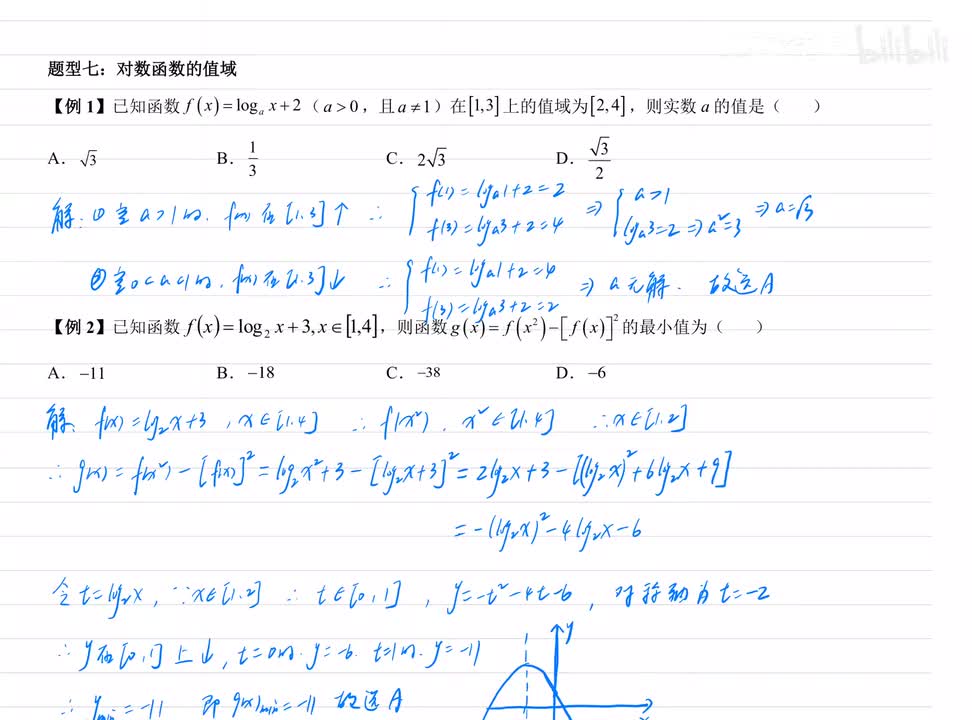 bilibili
题型七：对数函数的值域
【例 1】已知函数 f(x)=logₐ x+2（a>0，且 a≠1）在[1,3]上的值域为[2,4]，则实数 a 的值是（　　）
A．√3　B．1/3　C．2√3　D．√3/2
解：① 当 a>1时，f(x)在[1,3]↑ ∴ { f(1)=logₐ1+2=2　f(3)=logₐ3+2=4 ⇒ { a>1　logₐ3=2⇒a²=3 ⇒ a=√3
② 当 0<a<1时，f(x)在[1,3]↓ ∴ { f(1)=logₐ1+2=4　f(3)=logₐ3+2=2 ⇒ a无解．故选A
【例 2】已知函数 f(x)=log₂ x+3,x∈[1,4]，则函数 g(x)=f(x²)−[f(x)]² 的最小值为（　　）
A．−11　B．−18　C．−38　D．−6
解．f(x)=log₂x+3，x∈[1,4] ∴ f(x²)，x²∈[1,4] ∴x∈[1,2]
∴ g(x)=f(x²)−[f(x)]²=log₂x²+3−[log₂x+3]²=2log₂x+3−[(log₂x)²+6log₂x+9]
=−(log₂x)²−4log₂x−6
令 t=log₂x，∵x∈[1,2] ∴ t∈[0,1]，y=−t²−4t−6，对称轴为 t=−2
∴ y在[0,1]上↓，t=0时．y=−6．t=1时．y=−11
y
∴ yₘᵢₙ=−11　即 g(x)ₘᵢₙ=−11　故选A
x